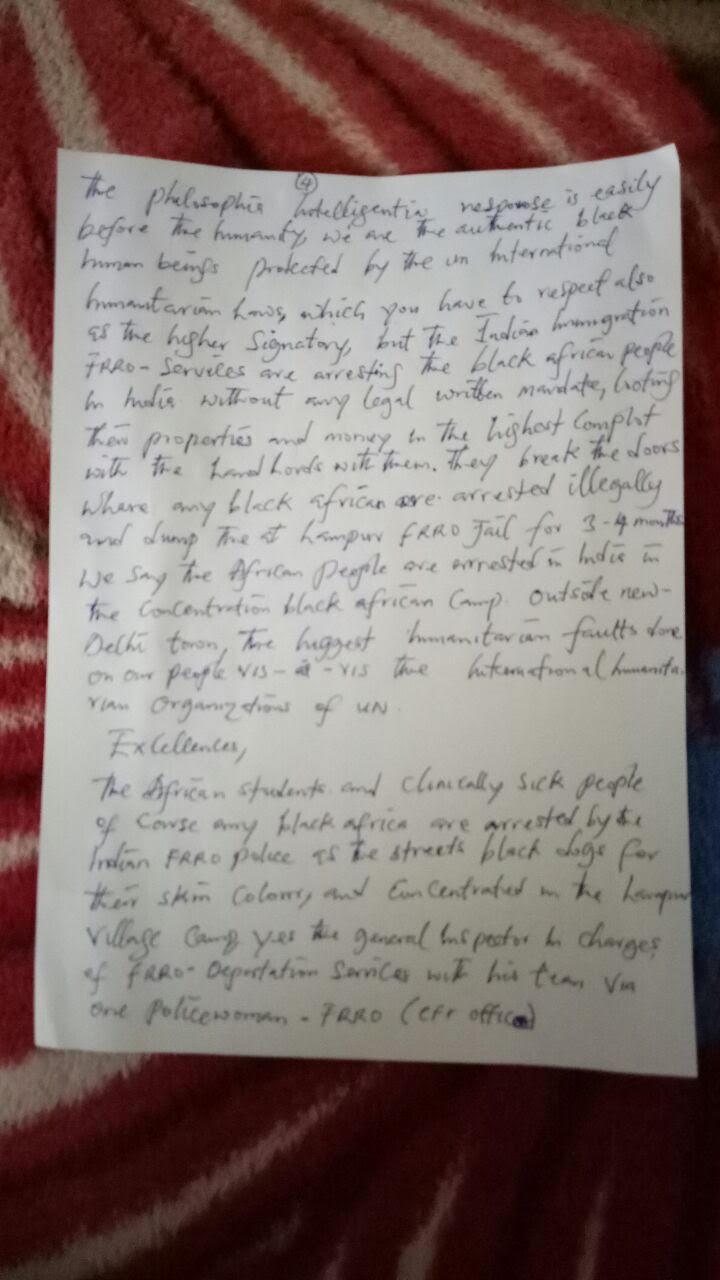 ④
The philosophia Intelligentia response is easily
before the humanity, we are the authentic black
human beings protected by the un International
humanitarian Laws, which you have to respect also
as the higher Signatory, but the Indian Immigration
FRRO-Services are arresting the black african people
In India without any legal written mandate, looting
their properties and money in the highest Complot
with the Landlords with them. They break the doors
where any black african are arrested illegally
and dump the at Lampur FRRO Jail for 3-4 months
We say the African people are arrested in India in
the Concentration black african Camp outside new-
Delhi town, The biggest humanitarian faults done
on our people vis-à-vis the International humanita-
rian Organizations of UN.
Excellences,
The African students and clinically sick people
of Course any black africa are arrested by the
Indian FRRO police as the streets black dogs for
their skin Colour, and Concentrated in the Lampur
Village Camp yes the general Inspector In charges
of FRRO-Deportation Services with his team via
one Policewoman - FRRO (cfr office)